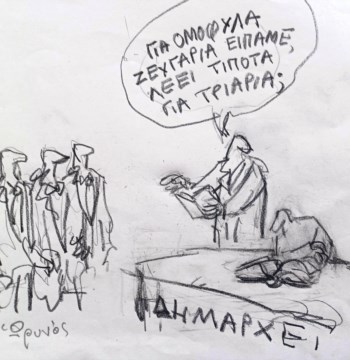 ΓΙΑ ΟΜΟΦΥΛΑ
ΖΕΥΓΑΡΙΑ ΕΙΠΑΜΕ,
ΛΕΕΙ ΤΙΠΟΤΑ
ΓΙΑ ΤΡΙΑΡΙΑ;
ΔΗΜΑΡΧΕΙ